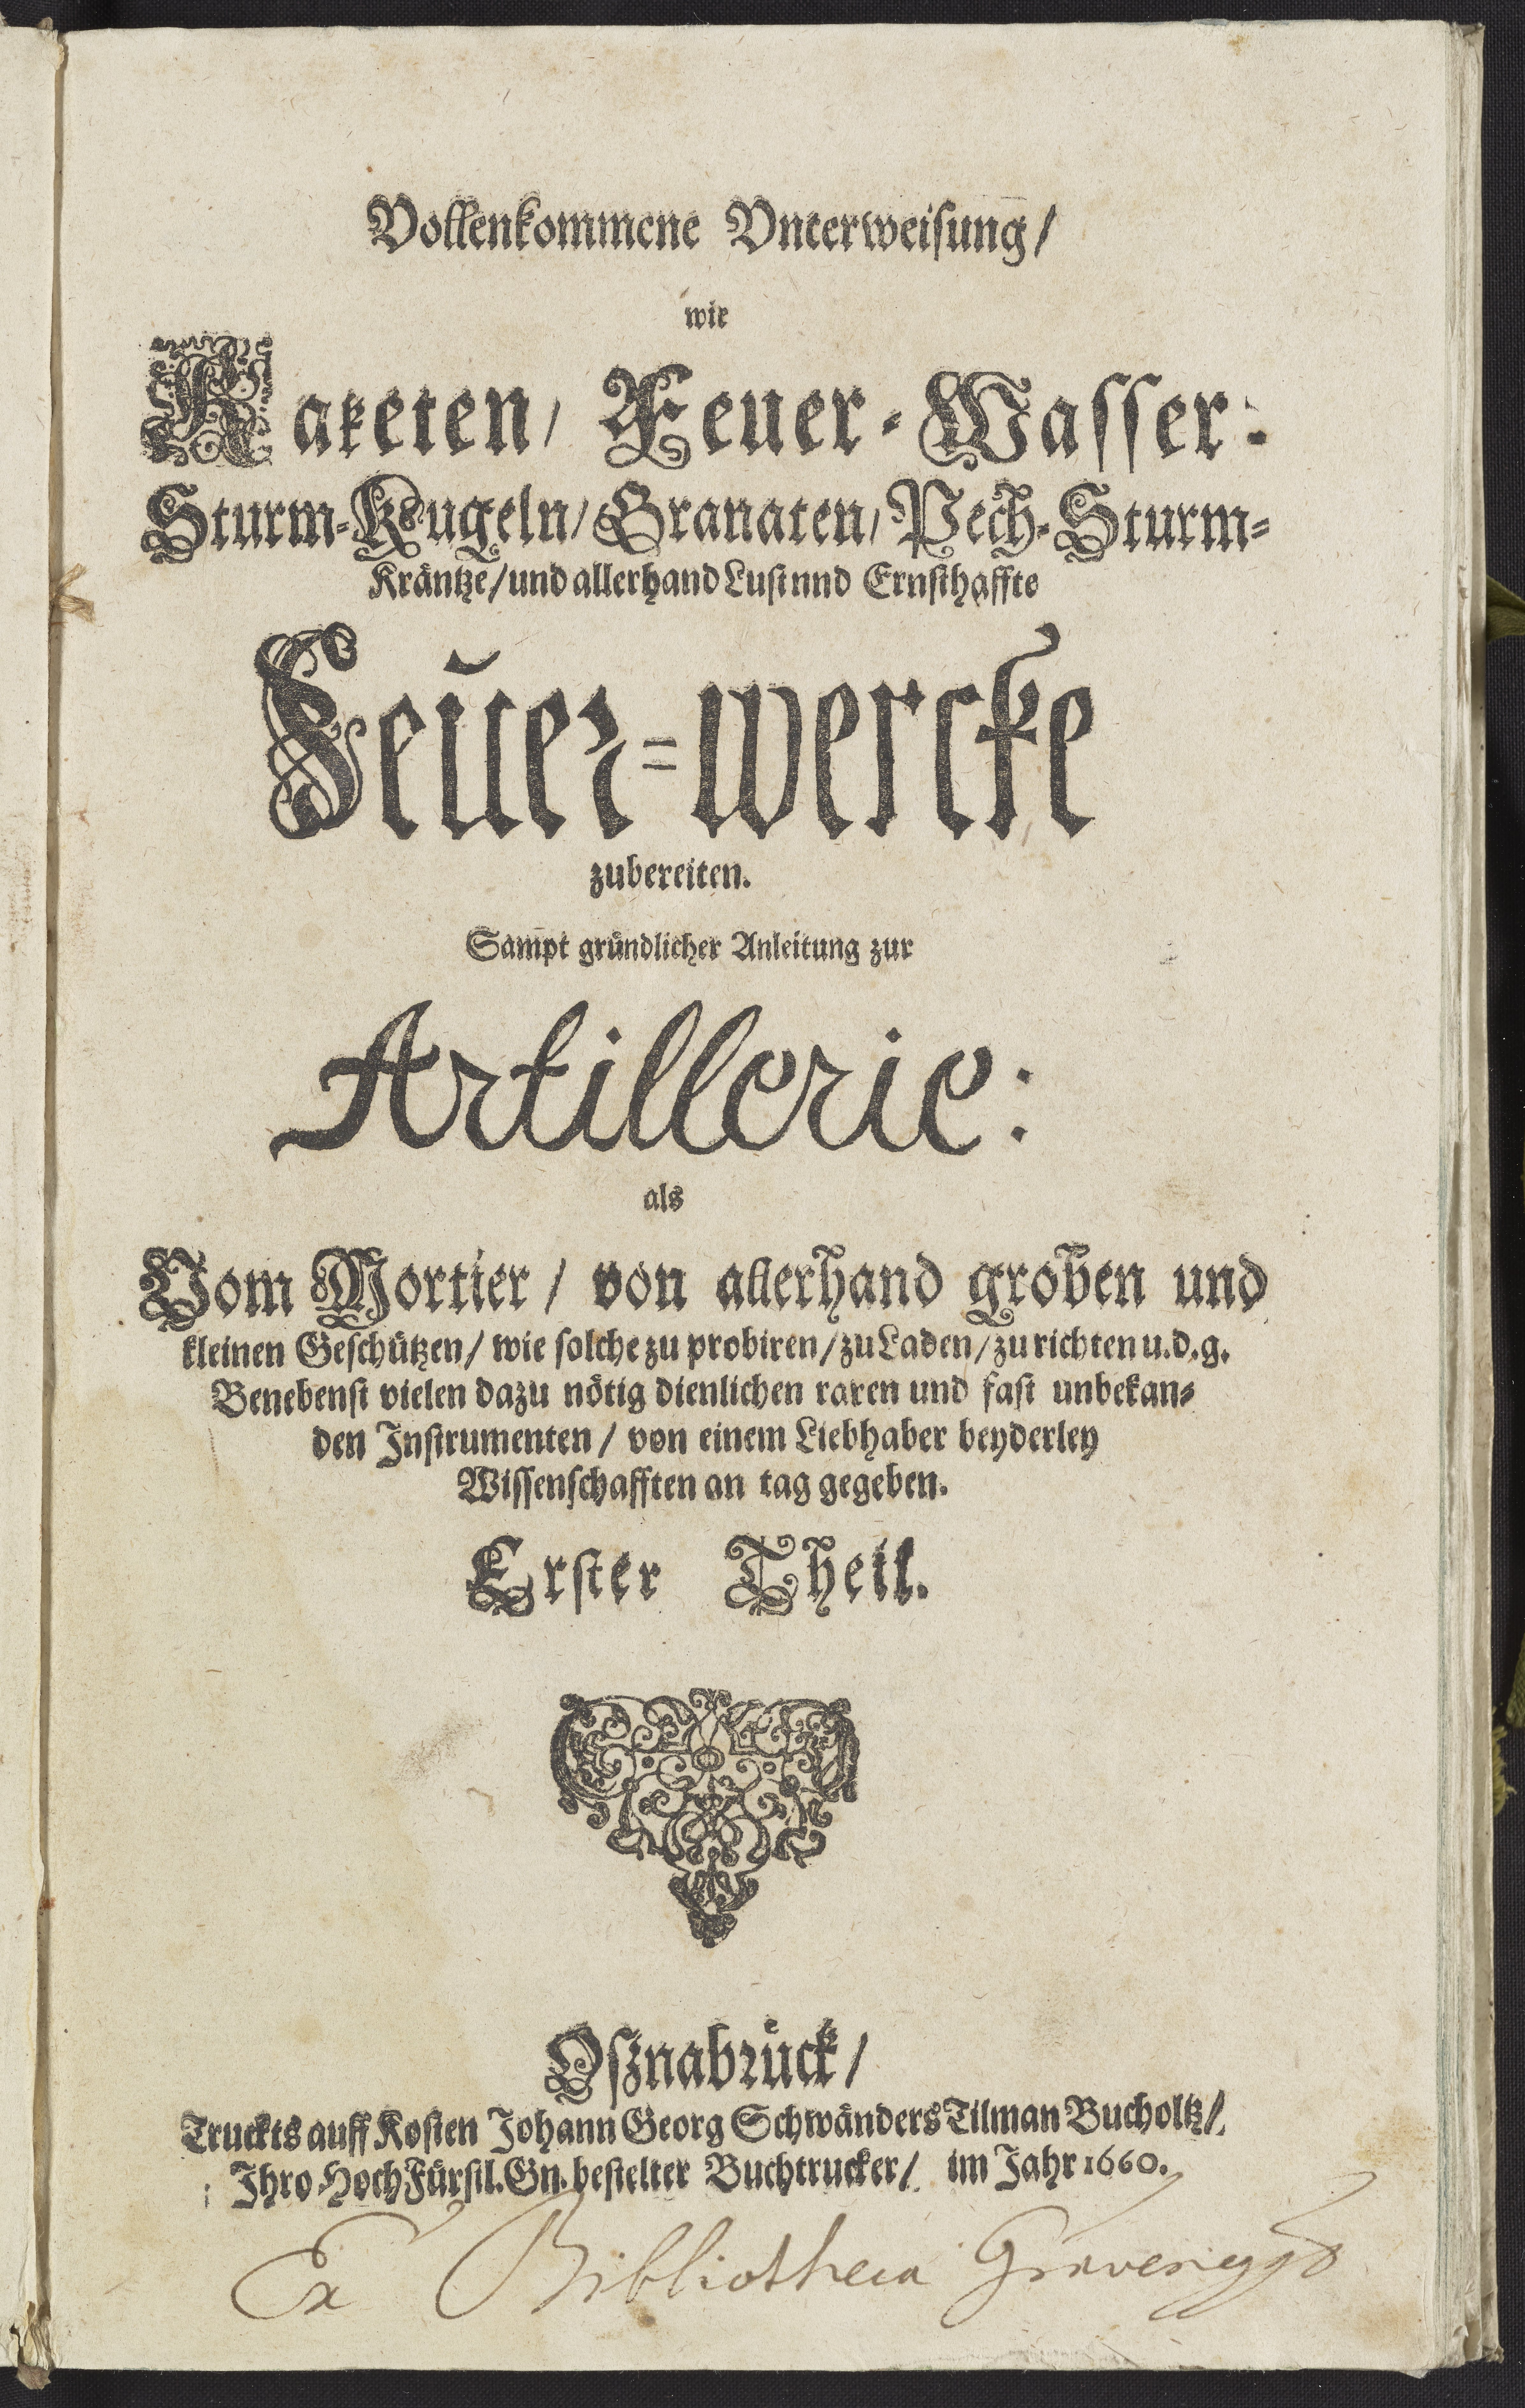 Vollenkommene Vnterweisung/
wie
Raketen/ Feuer-Wasser:
Sturm-Kugeln/ Granaten/ Pech-Sturm-
Kräntze/ und allerhand Lust nnd Ernsthaffte
Feuer-wercke
zubereiten.
Sampt gründlicher Anleitung zur
Artillerie:
als
Vom Mortier / von allerhand groben und
kleinen Geschützen/ wie solche zu probiren/ zu Laden/ zu richten u.d.g.
Benebenst vielen dazu nötig dienlichen raren und fast unbekan-
den Instrumenten / von einem Liebhaber beyderley
Wissenschafften an tag gegeben.
Erster Theil.
Osznabrück/
Truckts auff Kosten Johann Georg Schwänders Tilman Bucholtz/
Ihro HochFürstl. Gn. bestelter Buchtrucker/ im Jahr 1660.
Ex Bibliotheca